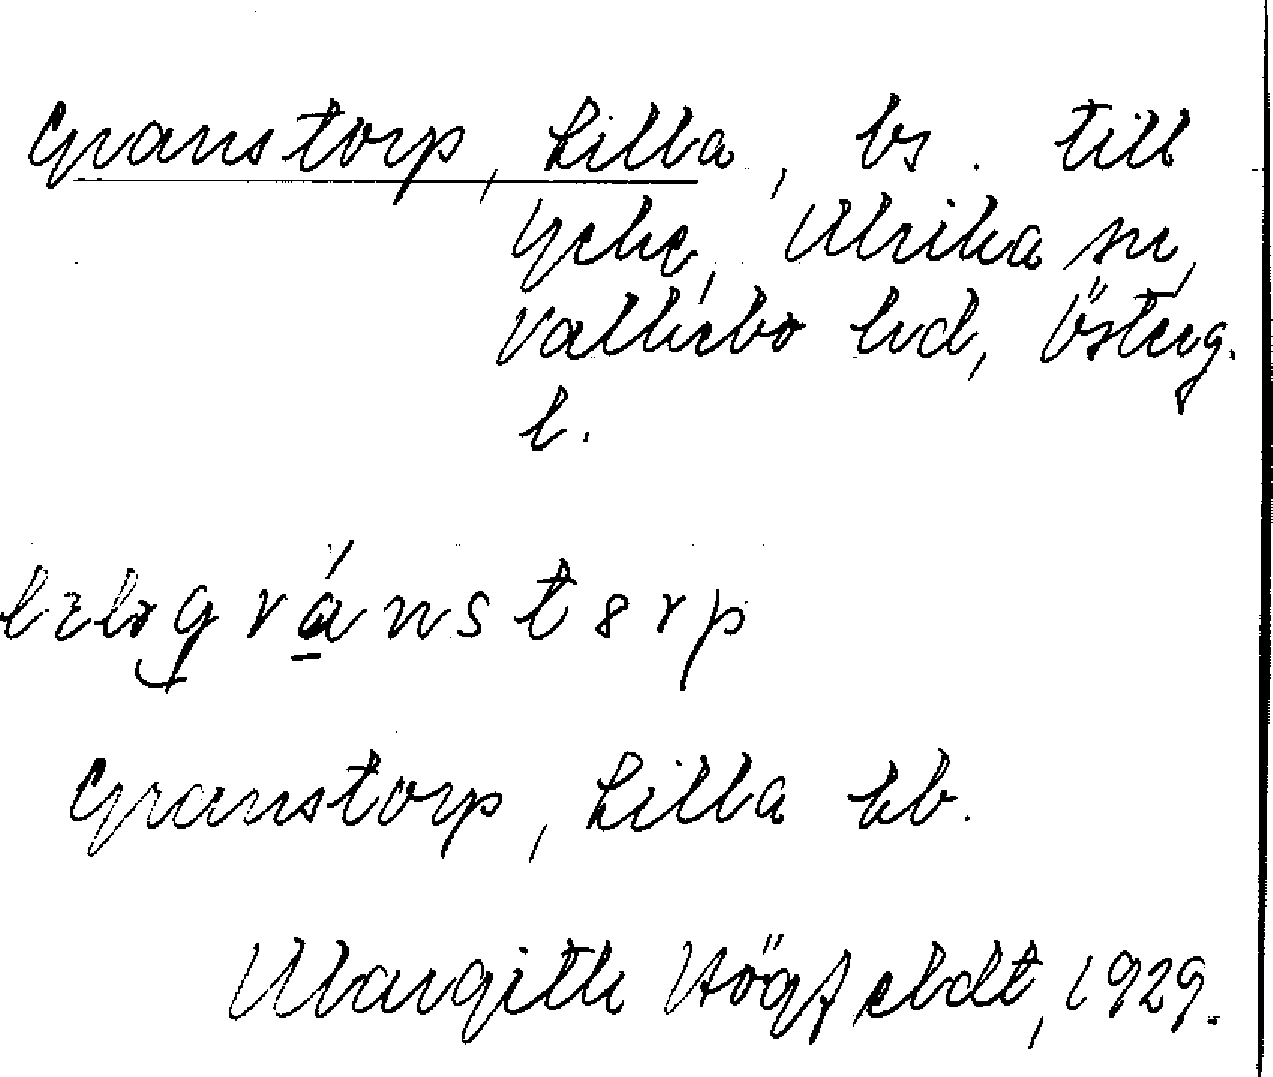 Granstorp, Lilla, bs. till
Ycke, Ulrika sn,
Valkebo hd, Österg.
l.
gránstorp
Granstorp, Lilla kb.
Margith Högfeldt, 1929.